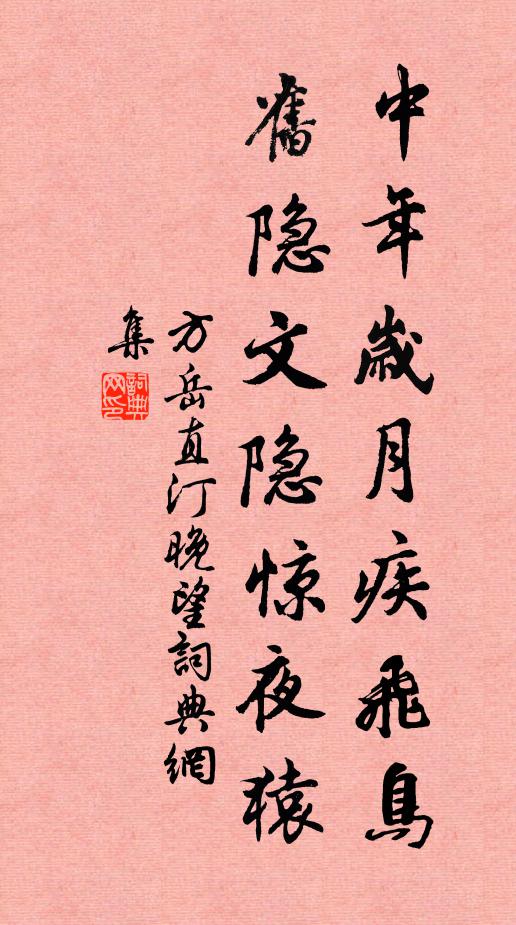 中年歲月疾飛鳥
舊隐文隐惊夜猿
方岳直汀晚望詞典網
集
詞典網印